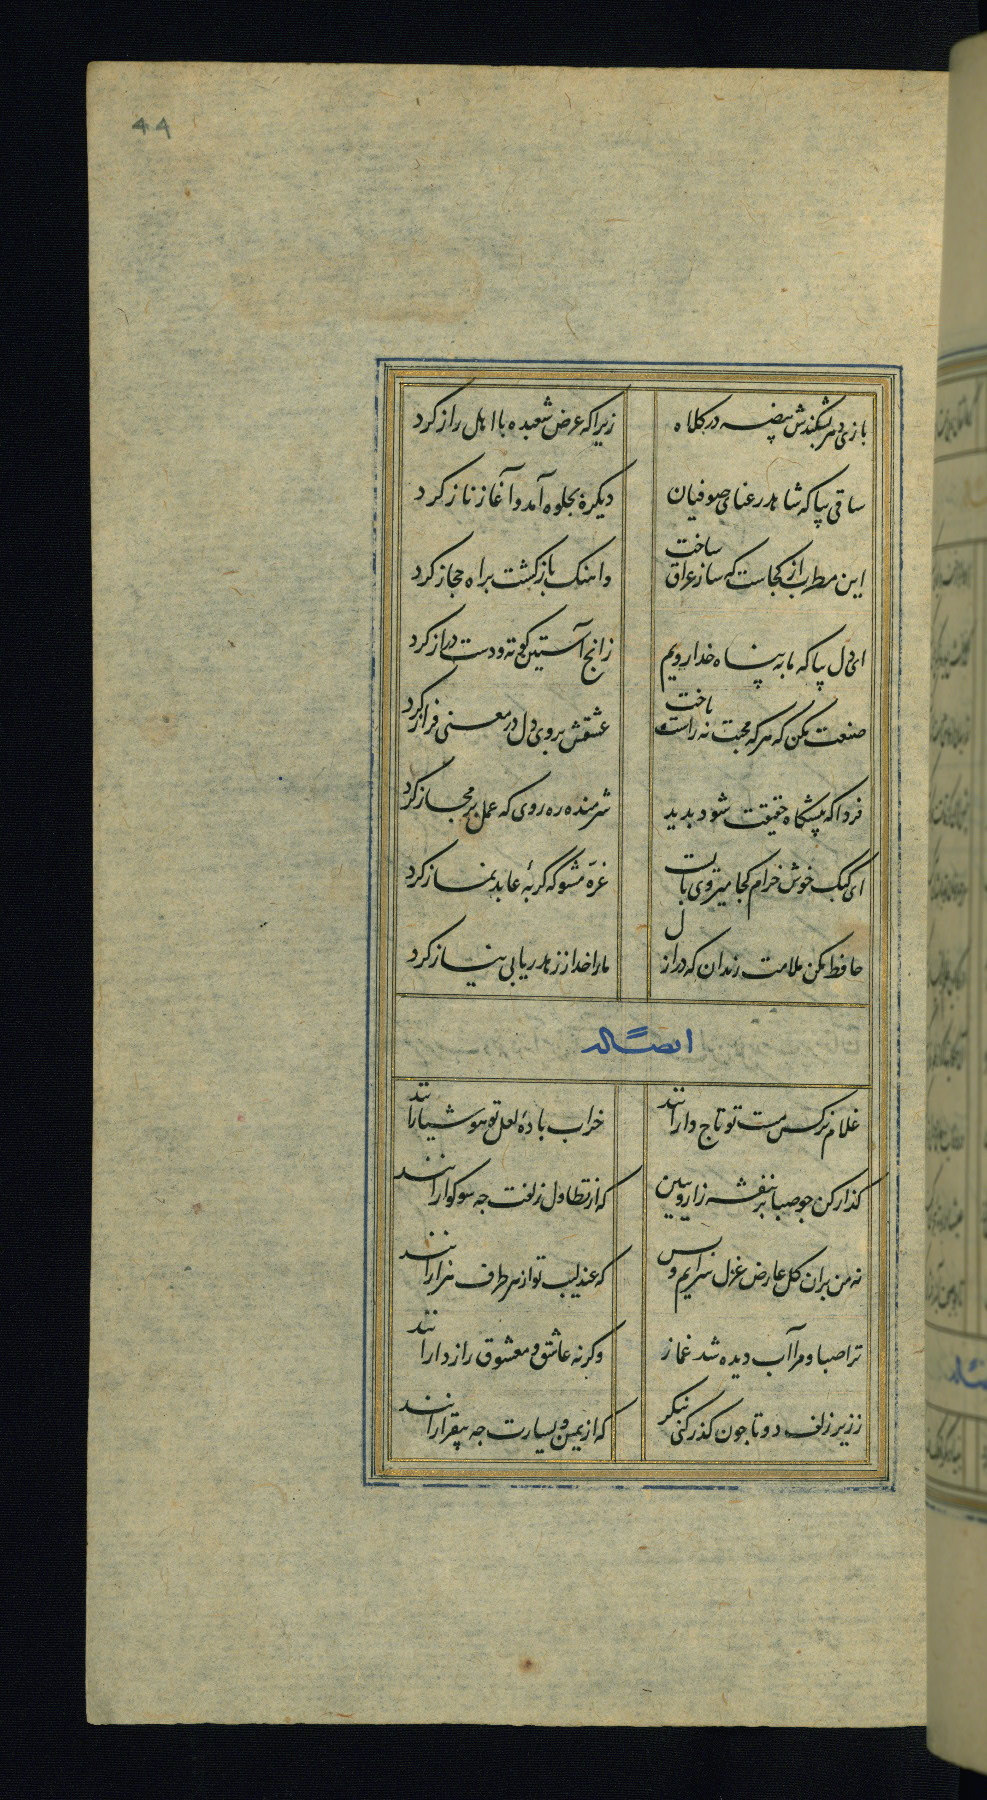 ۴۹
بازی دهر بشکندش بیضه در کلاه زیرا که عرض شعبده با اهل راز کرد
ساقی بیا که شاهد رعنای صوفیان دیکر بجلوه آمد و آغاز ناز کرد
این مطرب از کجاست که ساز عراق ساخت واهنک باز کشت براه حجاز کرد
ای دل بیا که ما به پناه خدا رویم زانج آستین کوته و دست دراز کرد
صنعت مکن که هر که محبت نه راست باخت عشقش بروی دل در معنی فراز کرد
فردا که پیشکاه حقیقت شود بدید شرمنده ره روی که عمل بر مجاز کرد
ای کبک خوش خرام کجا میروی بایست غره مشو که کربهٔ عابد نماز کرد
حافظ مکن ملامت رندان که در ازل ما را خدا ز زهد ریا بی نیاز کرد
ایضاً له
غلام نرکس مست تو تاج دارانند خراب بادهٔ لعل تو هوشیارانند
کذار کن جو صبا بر بنفشه زار و ببین که از تطاول زلفت جه سوکوارانند
نه من بران کل عارض غزل سرایم و بس که عندلیب تو از هر طرف هزارانند
ترا صبا و مرا آب دیده شد غماز وکرنه عاشق و معشوق رازدارانند
ز زیر زلف دوتا جون کذر کنی بنکر که از یمین و یسارت جه بیقرارانند